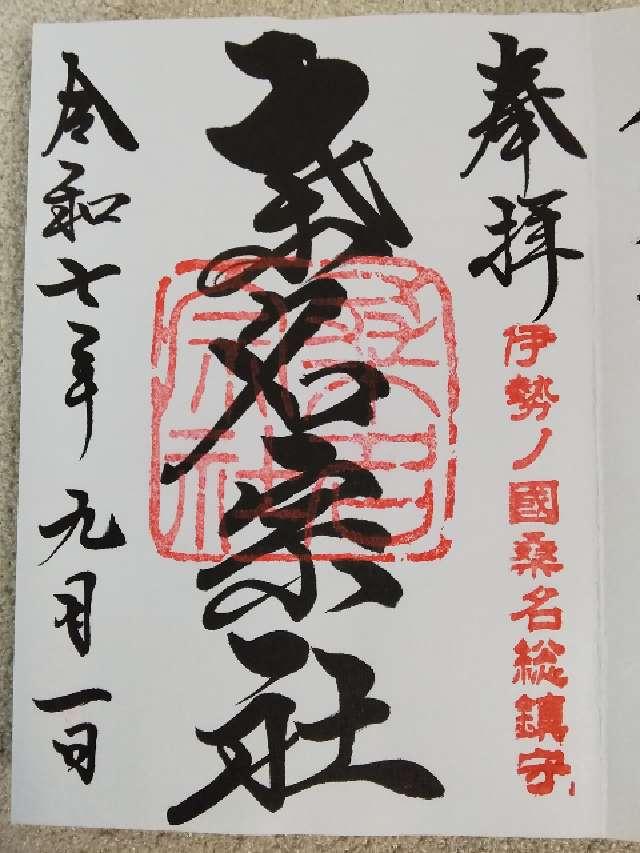 奉拝
伊勢ノ國桑名総鎮守
桑名宗社
桑名
宗社
令和七年九月一日